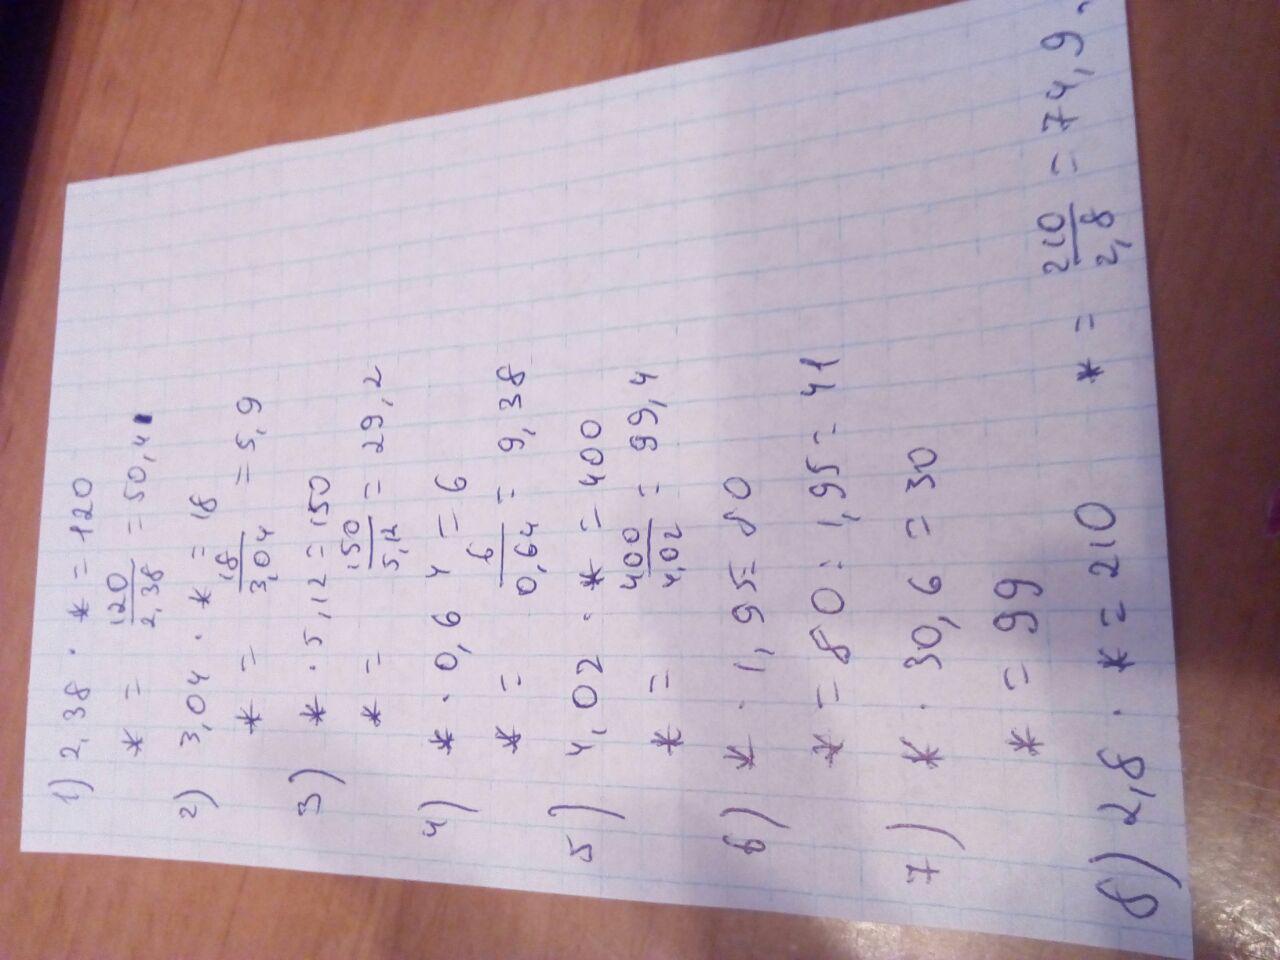 1) 2,38 · * = 120
* = 120/2,38 = 50,4
2) 3,04 · * = 18
* = 18/3,04 = 5,9
3) * · 5,12 = 150
* = 150/5,12 = 29,2
4) * · 0,64 = 6
* = 6/0,64 = 9,38
5) 4,02 · * = 400
* = 400/4,02 = 99,4
6) * · 1,95 = 80
* = 80 : 1,95 = 41
7) * · 30,6 = 30
* = 99
8) 2,8 · * = 210 * = 210/2,8 = 74,9.